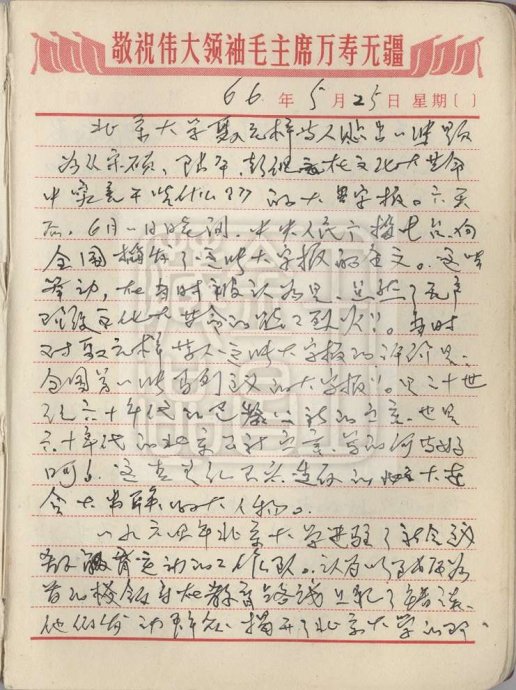 敬祝伟大领袖毛主席万寿无疆
66年5月25日 星期〔 〕
北京大学聂元梓等人贴出一张题
为《宋硕、陆平、彭珮云在文化大革命
中究竟干些什么???》的大字报。六天
后,6月一日晚间,中央人民广播电台向
全国播发了这张大字报的全文。这一
举动,在当时被认为是,点燃了无产
阶级文化大革命的熊熊烈火"。当时
对聂元梓等人这张大字报的评价是:
全国第一张马列主义的大字报"。是二十世
纪六十年代的巴黎公社的宣言,也是
六十年代的北京公社宣言,写的何等好
啊!
会 大 的大人物。
一九六四年北京大学进驻了社会主义
教育运动的工作队。认为以陆平为
首的校领导在教育路线上犯了错误,
他们发动群众,揭开了北京大学的阶